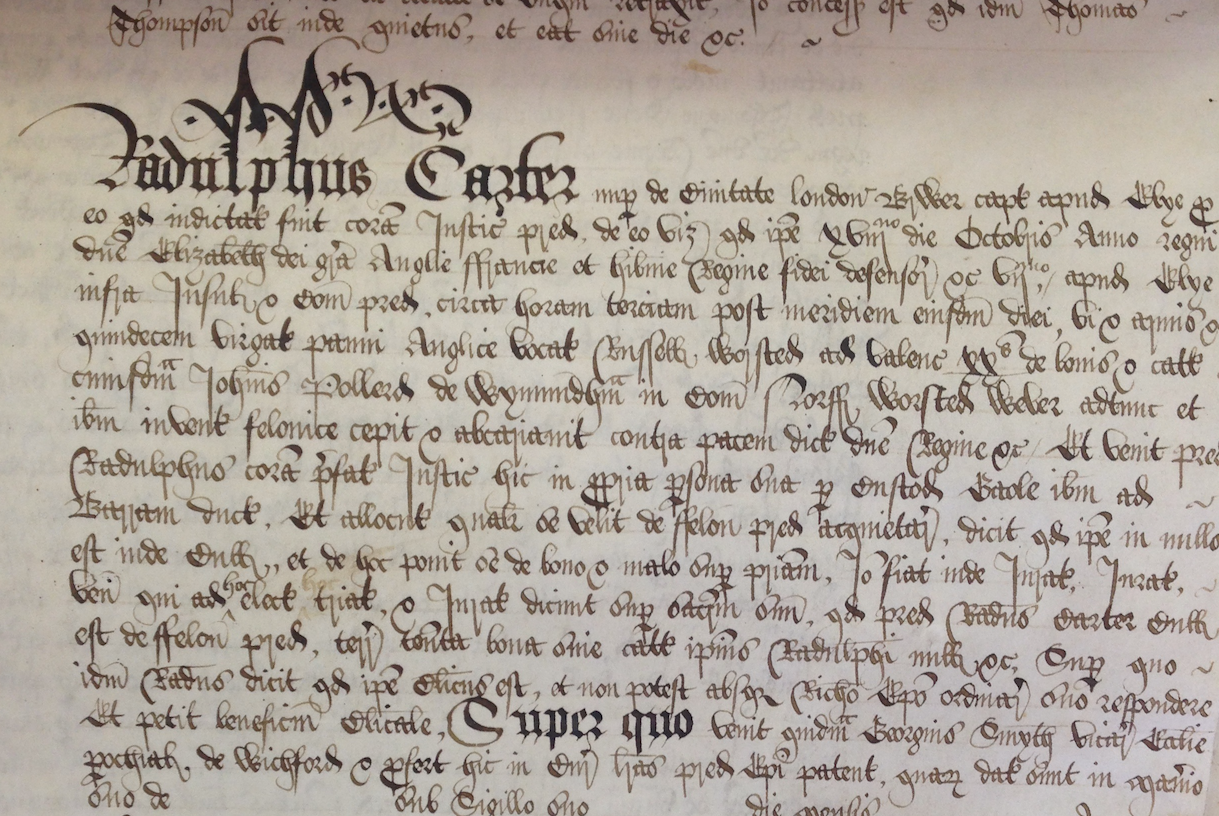 Thompson sit inde quietus, et eat sine die &c.
Radulphus Carter nup de Civitate london Brwer capt apud Elye p
eo qd indictat fuit cora Justic pred, de eo viz qd ipe xviij no die Octobris Anno regni
dne Elizabeth dei gra Anglie ffrancie et hibnie Regine fidei defensor &c vij mo, apud Elye
infra Insul & Com pred, circa horam terciam post meridiem eiusdm diei, vi & armis &
quindecem virgat panni Anglice vocat Russell worsted ad valenc xx s de bonis & catt
cuiusdm Johnis Pollerd de Wymundhm in Com Norff Worsted Wever adtunc et
ibm invent felonice cepit & abcariavit contra pacem dict dne Regine &c Et venit pred
Radulphus cora pfat Justic hic in ppria psona sua p Custod Gaole ibm ad
Barram duct, Et allocut qualr se velit de ffelon pred acquietar, dicit qd ipe in nullo
est inde Cull, et de hoc ponit se de bono & malo sup priam, Jo fiat inde Jurat, Jurat,
ven qui ad hoc elect triat, & Jurat dicunt sup sacrm suu, qd pred Radus Carter Cull
est de ffelon pred, terr tenta bona sive catt ipius Radulphi null &c, Sup quo
idm Radus dicit qd ipe Clicus est, et non potest absqz Richo Epo ordinar suo respondere
Et petit beneficiu Clicale, Super quo venit quidm Georgius Smyth vicar Ecclie
pochial de Wichford & pfert hic in Cur lras pred Epi patent, quarz dat sunt in manio
suo de sub Sigillo suo die mensis